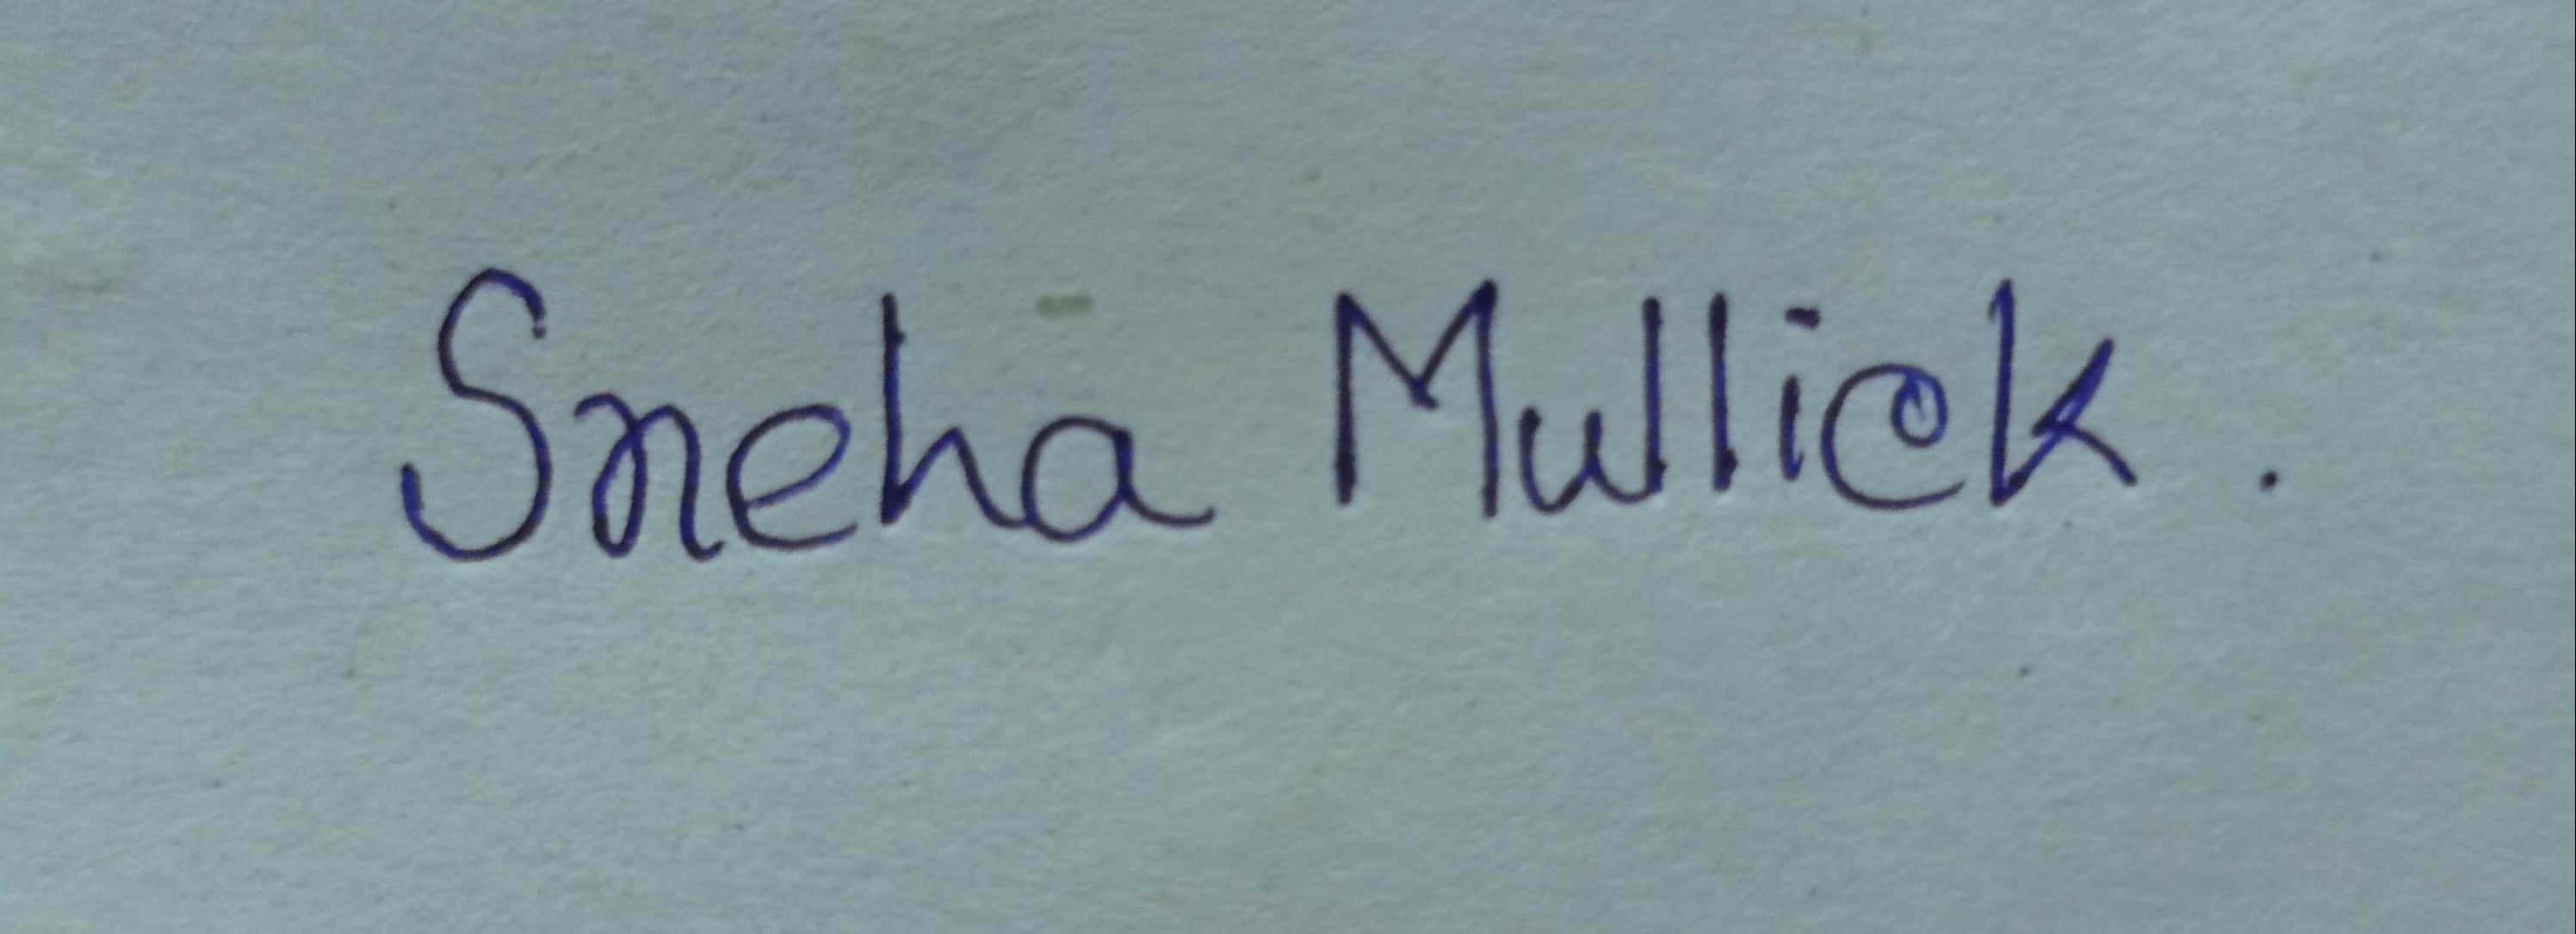 Sneha Mullick.